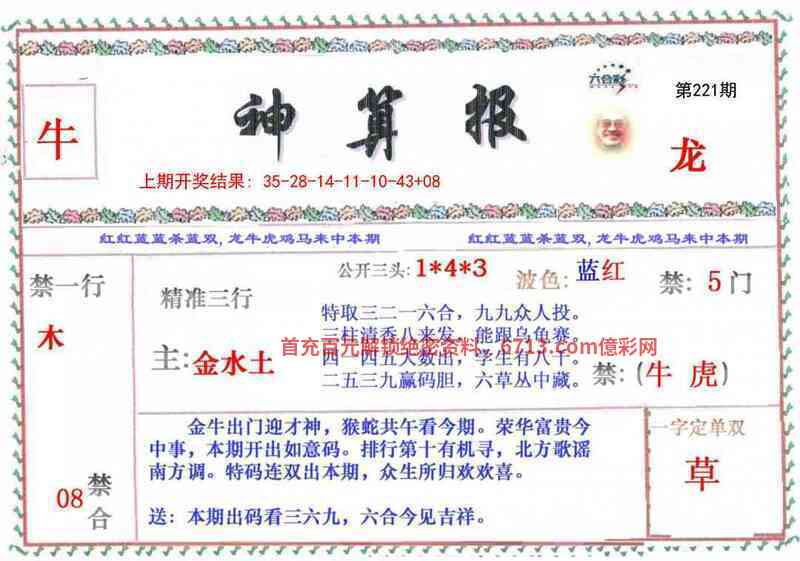 神算报
六合彩
第221期
牛
龙
上期开奖结果: 35-28-14-11-10-43+08
红红蓝蓝杀蓝双, 龙牛虎鸡马来中本期
红红蓝蓝杀蓝双, 龙牛虎鸡马来中本期
禁一行
木
08
禁合
精准三行
主: 金水土
公开三头: 1*4*3
波色: 蓝红
禁: 5门
特取三二一六合，九九众人投。
三柱清香八来发，能跟乌龟赛。
四一四五大数出，学生有八千。
二五三九赢码胆，六草丛中藏。
首充百元解锁绝密资料，6713.com億彩网
禁: (牛 虎)
金牛出门迎才神，猴蛇共午看今期。荣华富贵今
中事，本期开出如意码。排行第十有机寻，北方歌谣
南方调。特码连双出本期，众生所归欢欢喜。
送：本期出码看三六九，六合今见吉祥。
一字定单双
草